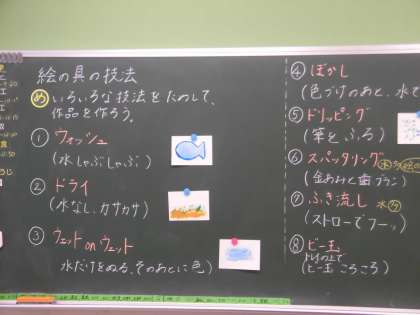 絵の具の技法
め いろいろな技法をためして、
作品を作ろう。
① ウォッシュ
(水しゃぶしゃぶ)
② ドライ
(水なし、カサカサ)
③ ウェットonウェット
水だけをぬる、そのあとに色)
④ ぼかし
(色づけのあと、水で
⑤ ドリッピング
(筆をふる)
⑥ スパッタリング
(金あみと歯ブラシ)
⑦ ふき流し
(ストローでフーッ)
⑧ ビー玉
トレイの上で
(ビー玉ころころ)